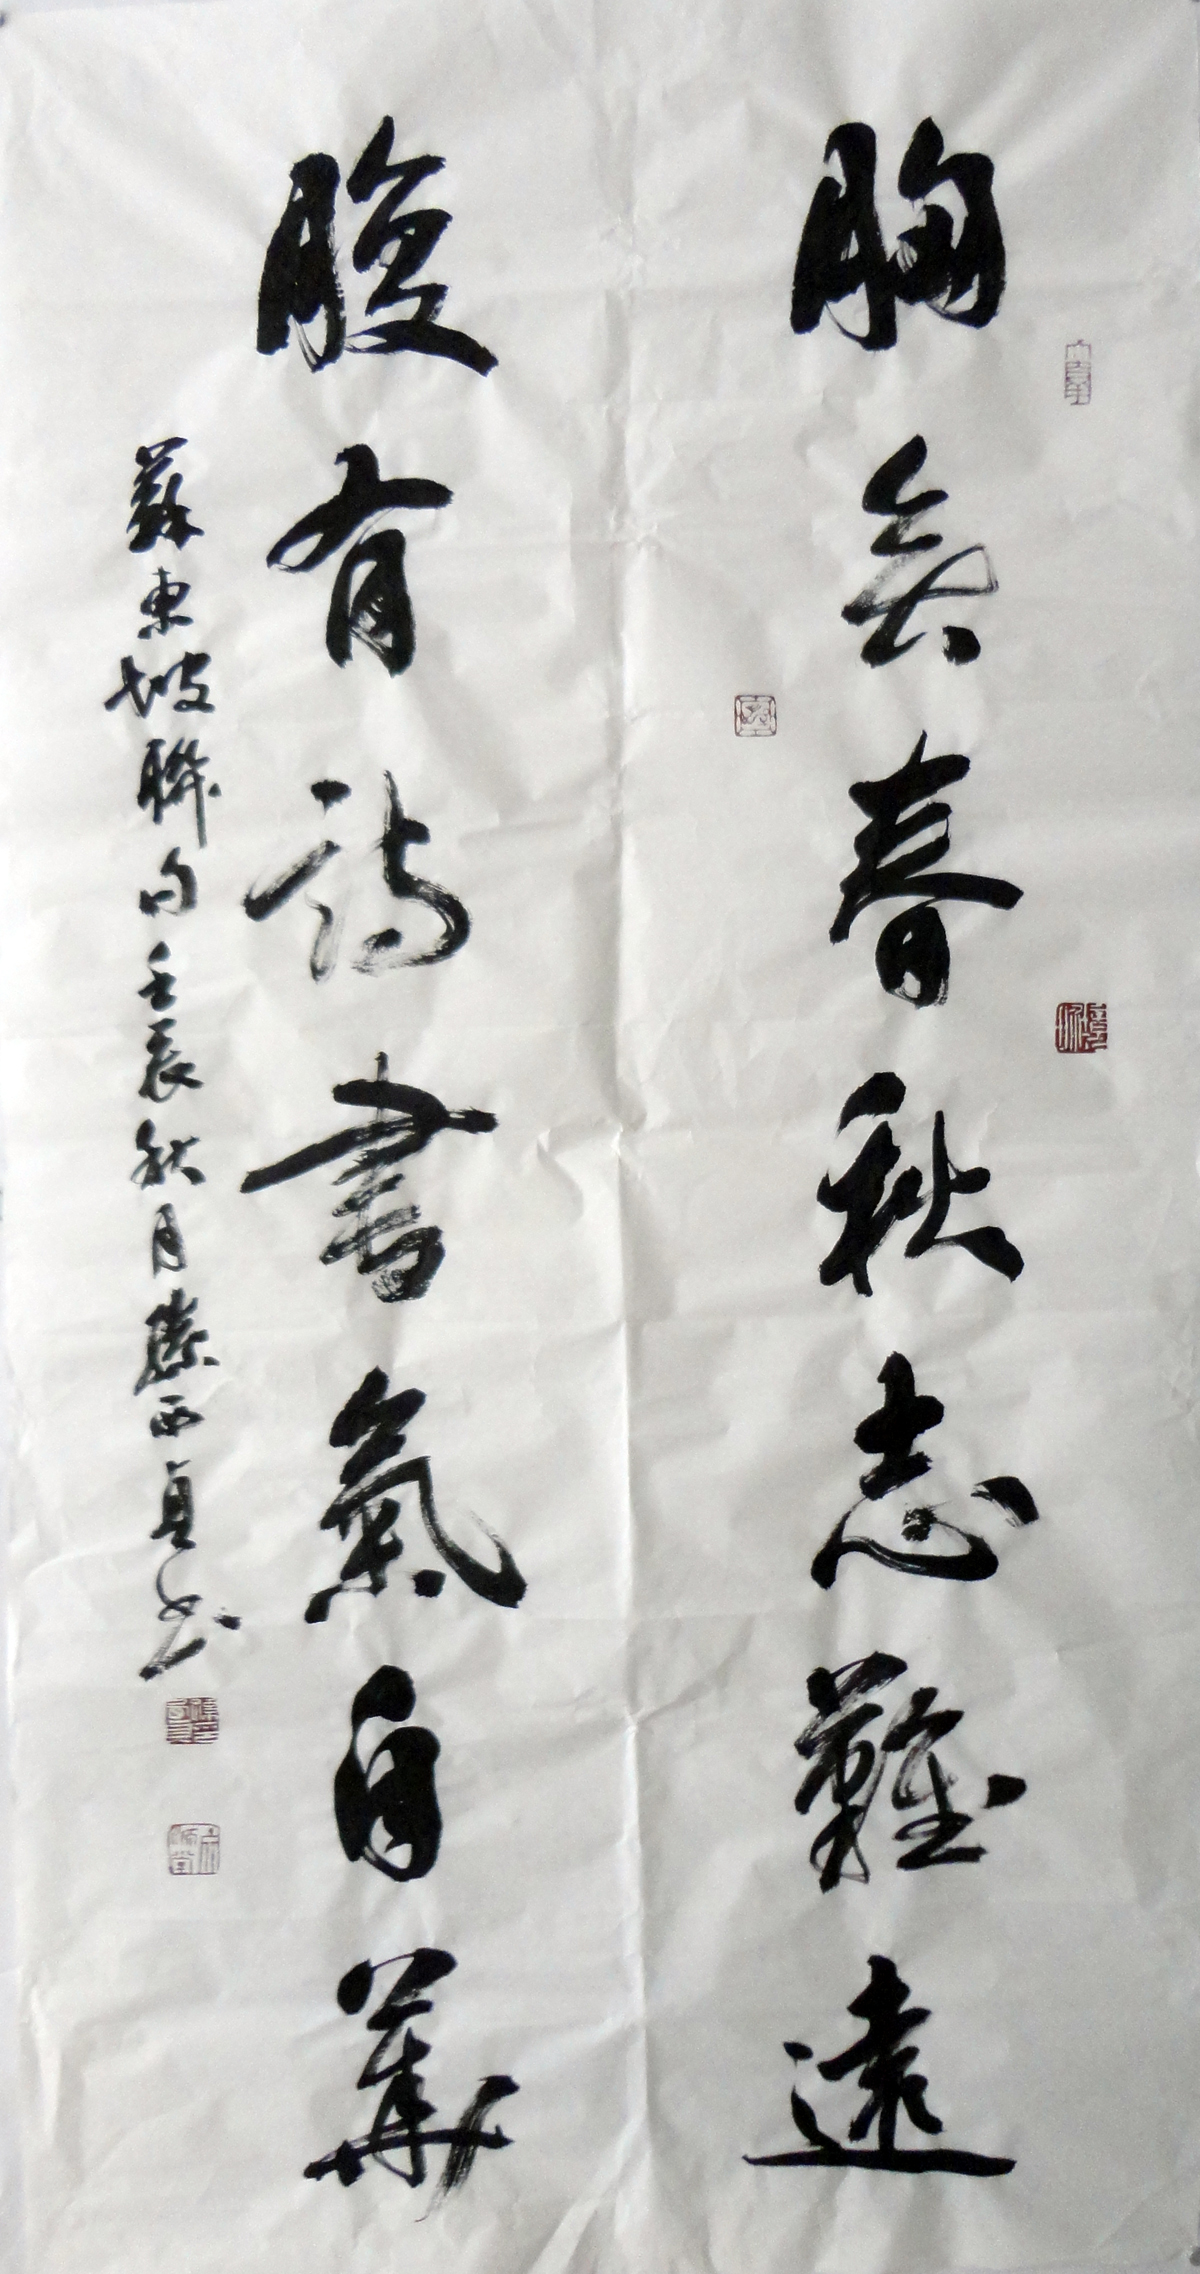 胸無春秋志難遠
腹有詩書氣自華
蘇東坡聯句壬辰秋月滕西貞书